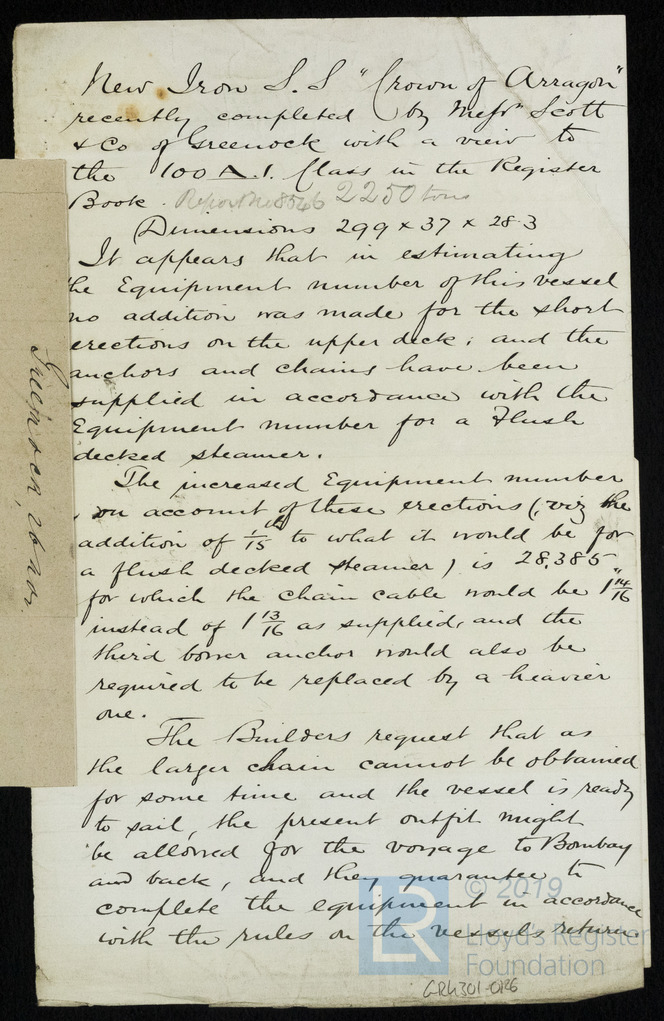 New Iron S.S "Crown of Arragon"
recently completed by Messrs Scott
& Co of Greenock with a view to
the 100 A.1. Class in the Register
Book. Report No 8546 2250 tons
Dimensions 299 x 37 x 28.3
It appears that in estimating
the Equipment number of this vessel
no addition was made for the short
erections on the upper deck; and the
anchors and chains have been
supplied in accordance with the
Equipment number for a Flush
decked steamer.
The increased Equipment number
on account of these erections (viz the
addition of 1/15th to what it would be for
a flush decked steamer) is 28,385
for which the chain cable would be 1 14/16"
instead of 1 13/16 as supplied, and the
third bower anchor would also be
required to be replaced by a heavier
one.
The Builders request that as
the larger chain cannot be obtained
for some time and the vessel is ready
to sail, the present outfit might
be allowed for the voyage to Bombay
and back, and they guarantee to
complete the equipment in accordance
with the rules on the vessels return.
Greenock, 26 Nov.
LR
© 2019
Lloyd's Register
Foundation
GRK301-0126